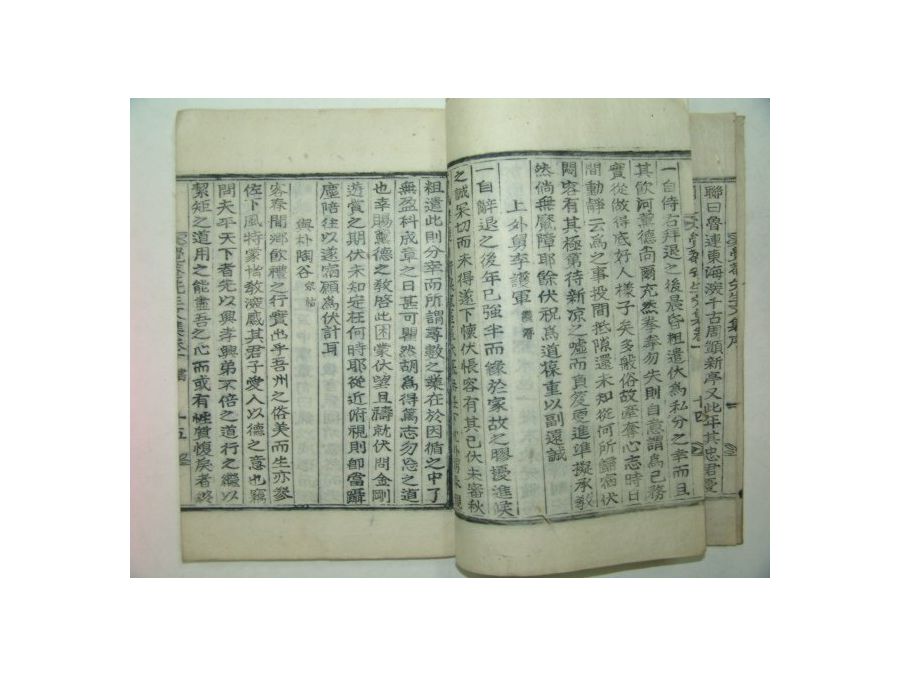 聯曰魯連東海淚千古周顗新亭又此年其忠君憂
一自侍右拜退之後晨昏粗遣伏為私分之幸而且
其飮河薰德尙爾充然拳拳勿失則自意謂為已務
實從做得底好人樣子矣多般俗故產奪心志時日
間動靜云為之事投間抵隙還未知從何所歸宿伏
悶容有其極第待新凉之墟而負笈更進準擬承敎
然倘無魔障耶餘伏祝為道葆重以副遠誠
上外舅李護軍
一自辭退之後年已強半而緣於家故之膠擾進候
之誠杲切而未得遂下懷伏悵容有其已伏未審秋
粗遣此則分幸而所謂尋數之業在於因循之中了
無盈科成章之日甚可瞿然胡為得篤志勿怠之道
也幸賜薰德之敎啓此困蒙伏望且禱就伏問金剛
遊賞之期伏未知定在何時耶從近俯視則卽當躋
塵陪往以遂宿願為伏計耳
與朴陶谷
客春聞鄕飮禮之行實也乎吾州之俗美而生亦參
佐下風特蒙皆敎深感其君子愛人以德之意也竊
問夫平天下者先以興孝興弟不倍之道行之繼以
絜矩之道用之能盡吾之心而或有性質愎戾者終